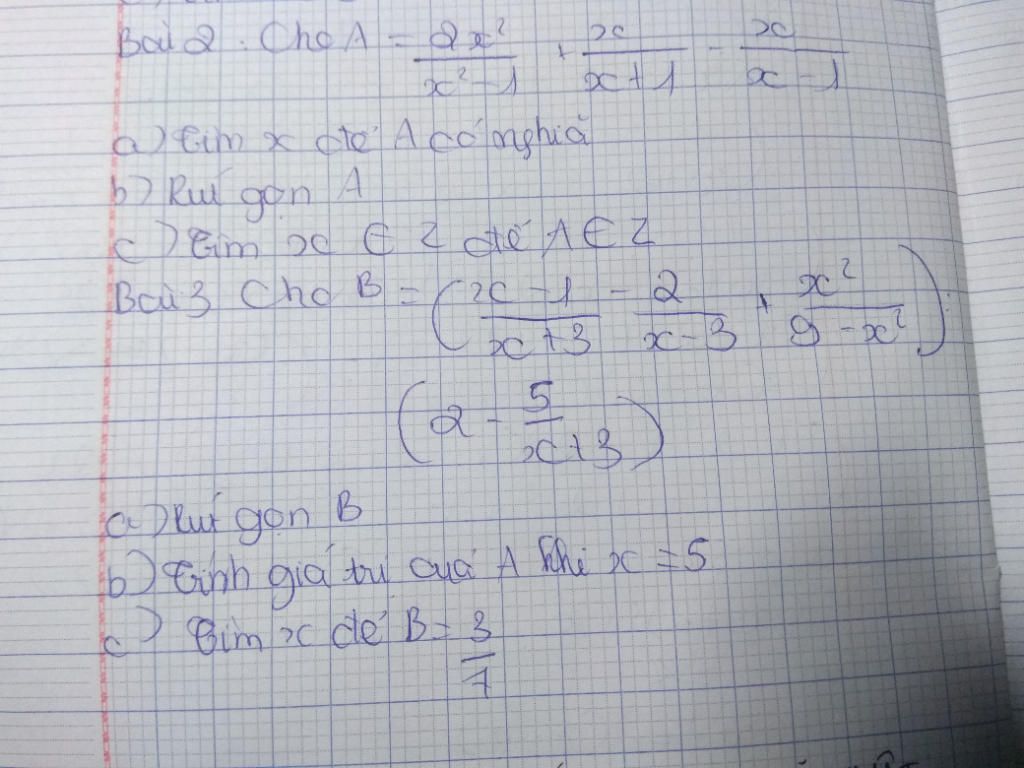 Bài 2. Cho A = 2x²/(x²-1) + x/(x+1) - x/(x-1)
a) Tìm x để A có nghĩa
b) Rút gọn A
c) Tìm x ∈ Z để A ∈ Z
Bài 3 Cho B = ((x-1)/(x+3) - 2/(x-3) + x²/(9-x²)) :
(2 - 5/(x+3))
a) Rút gọn B
b) Tính giá trị của A khi x = 5
c) Tìm x để B = 3/7